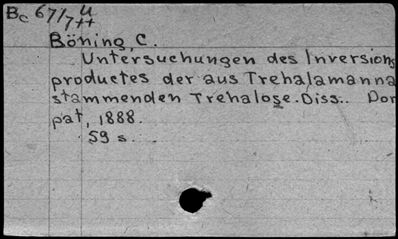 Bc 67/7 u
++
Böning, C.
Untersuchungen des Inversions
productes der aus Trehalamanna
stammenden Trehalose. Diss.. Dor
pat, 1888.
59 s.